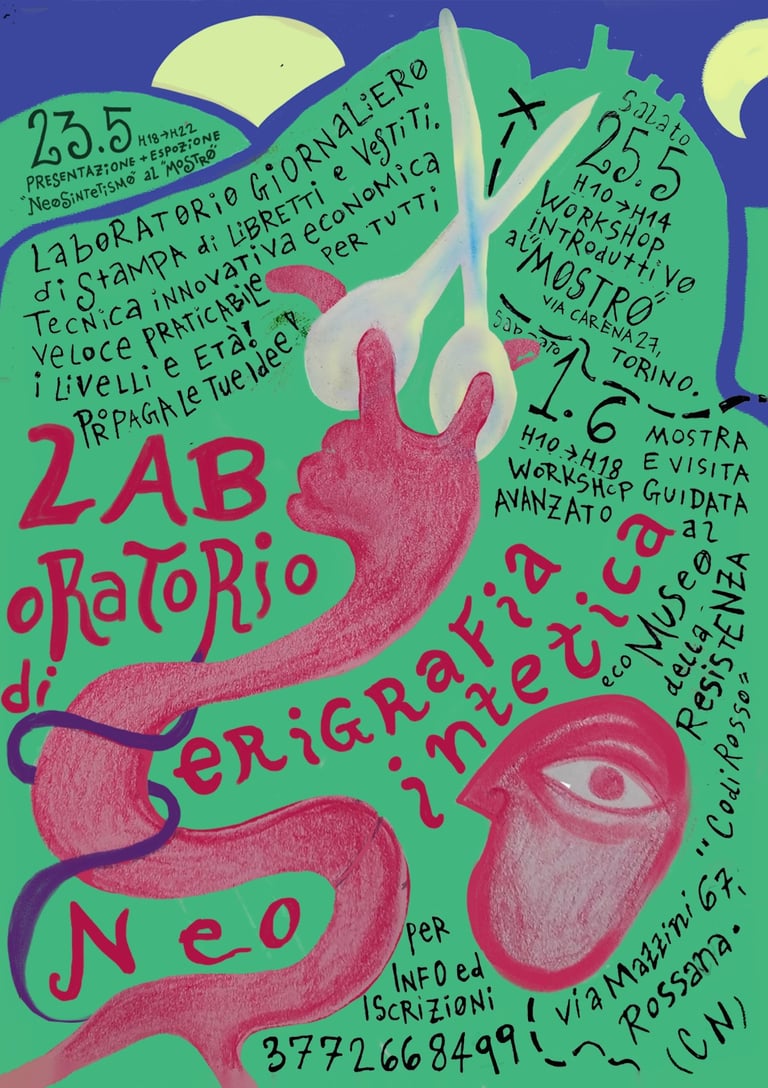 23.5 H18→H22
PRESENTAZIONE + ESPOZIONE
"NEOSINTETISMO" al "MOSTRO"
LABORATORIO GIORNALIERO
di STAMPA di LIBRETTI e VESTITI.
TECNICA INNOVATIVA ECONOMICA
VELOCE PRATICABILE PER TUTTI
i LIVELLI E ETÀ!
PROPAGA LE TUE IDEE!
Sabato
25.5
H10→H14
WORKSHOP
INTRODUTTIVO
al "MOSTRO"
VIA CARENA 27,
TORINO.
Sabato
1.6
H10→H18
WORKSHOP
AVANZATO
MOSTRA
E VISITA
GUIDATA
al
eco MUSEO
della
RESISTENZA
"CodiRosso"
via Mazzini 67,
Rossana.
(CN)
LAB
ORATORIO
di
ERIGRAFIA
iNTETICA
NEO
PER
INFO ed
ISCRIZIONI
3772668499